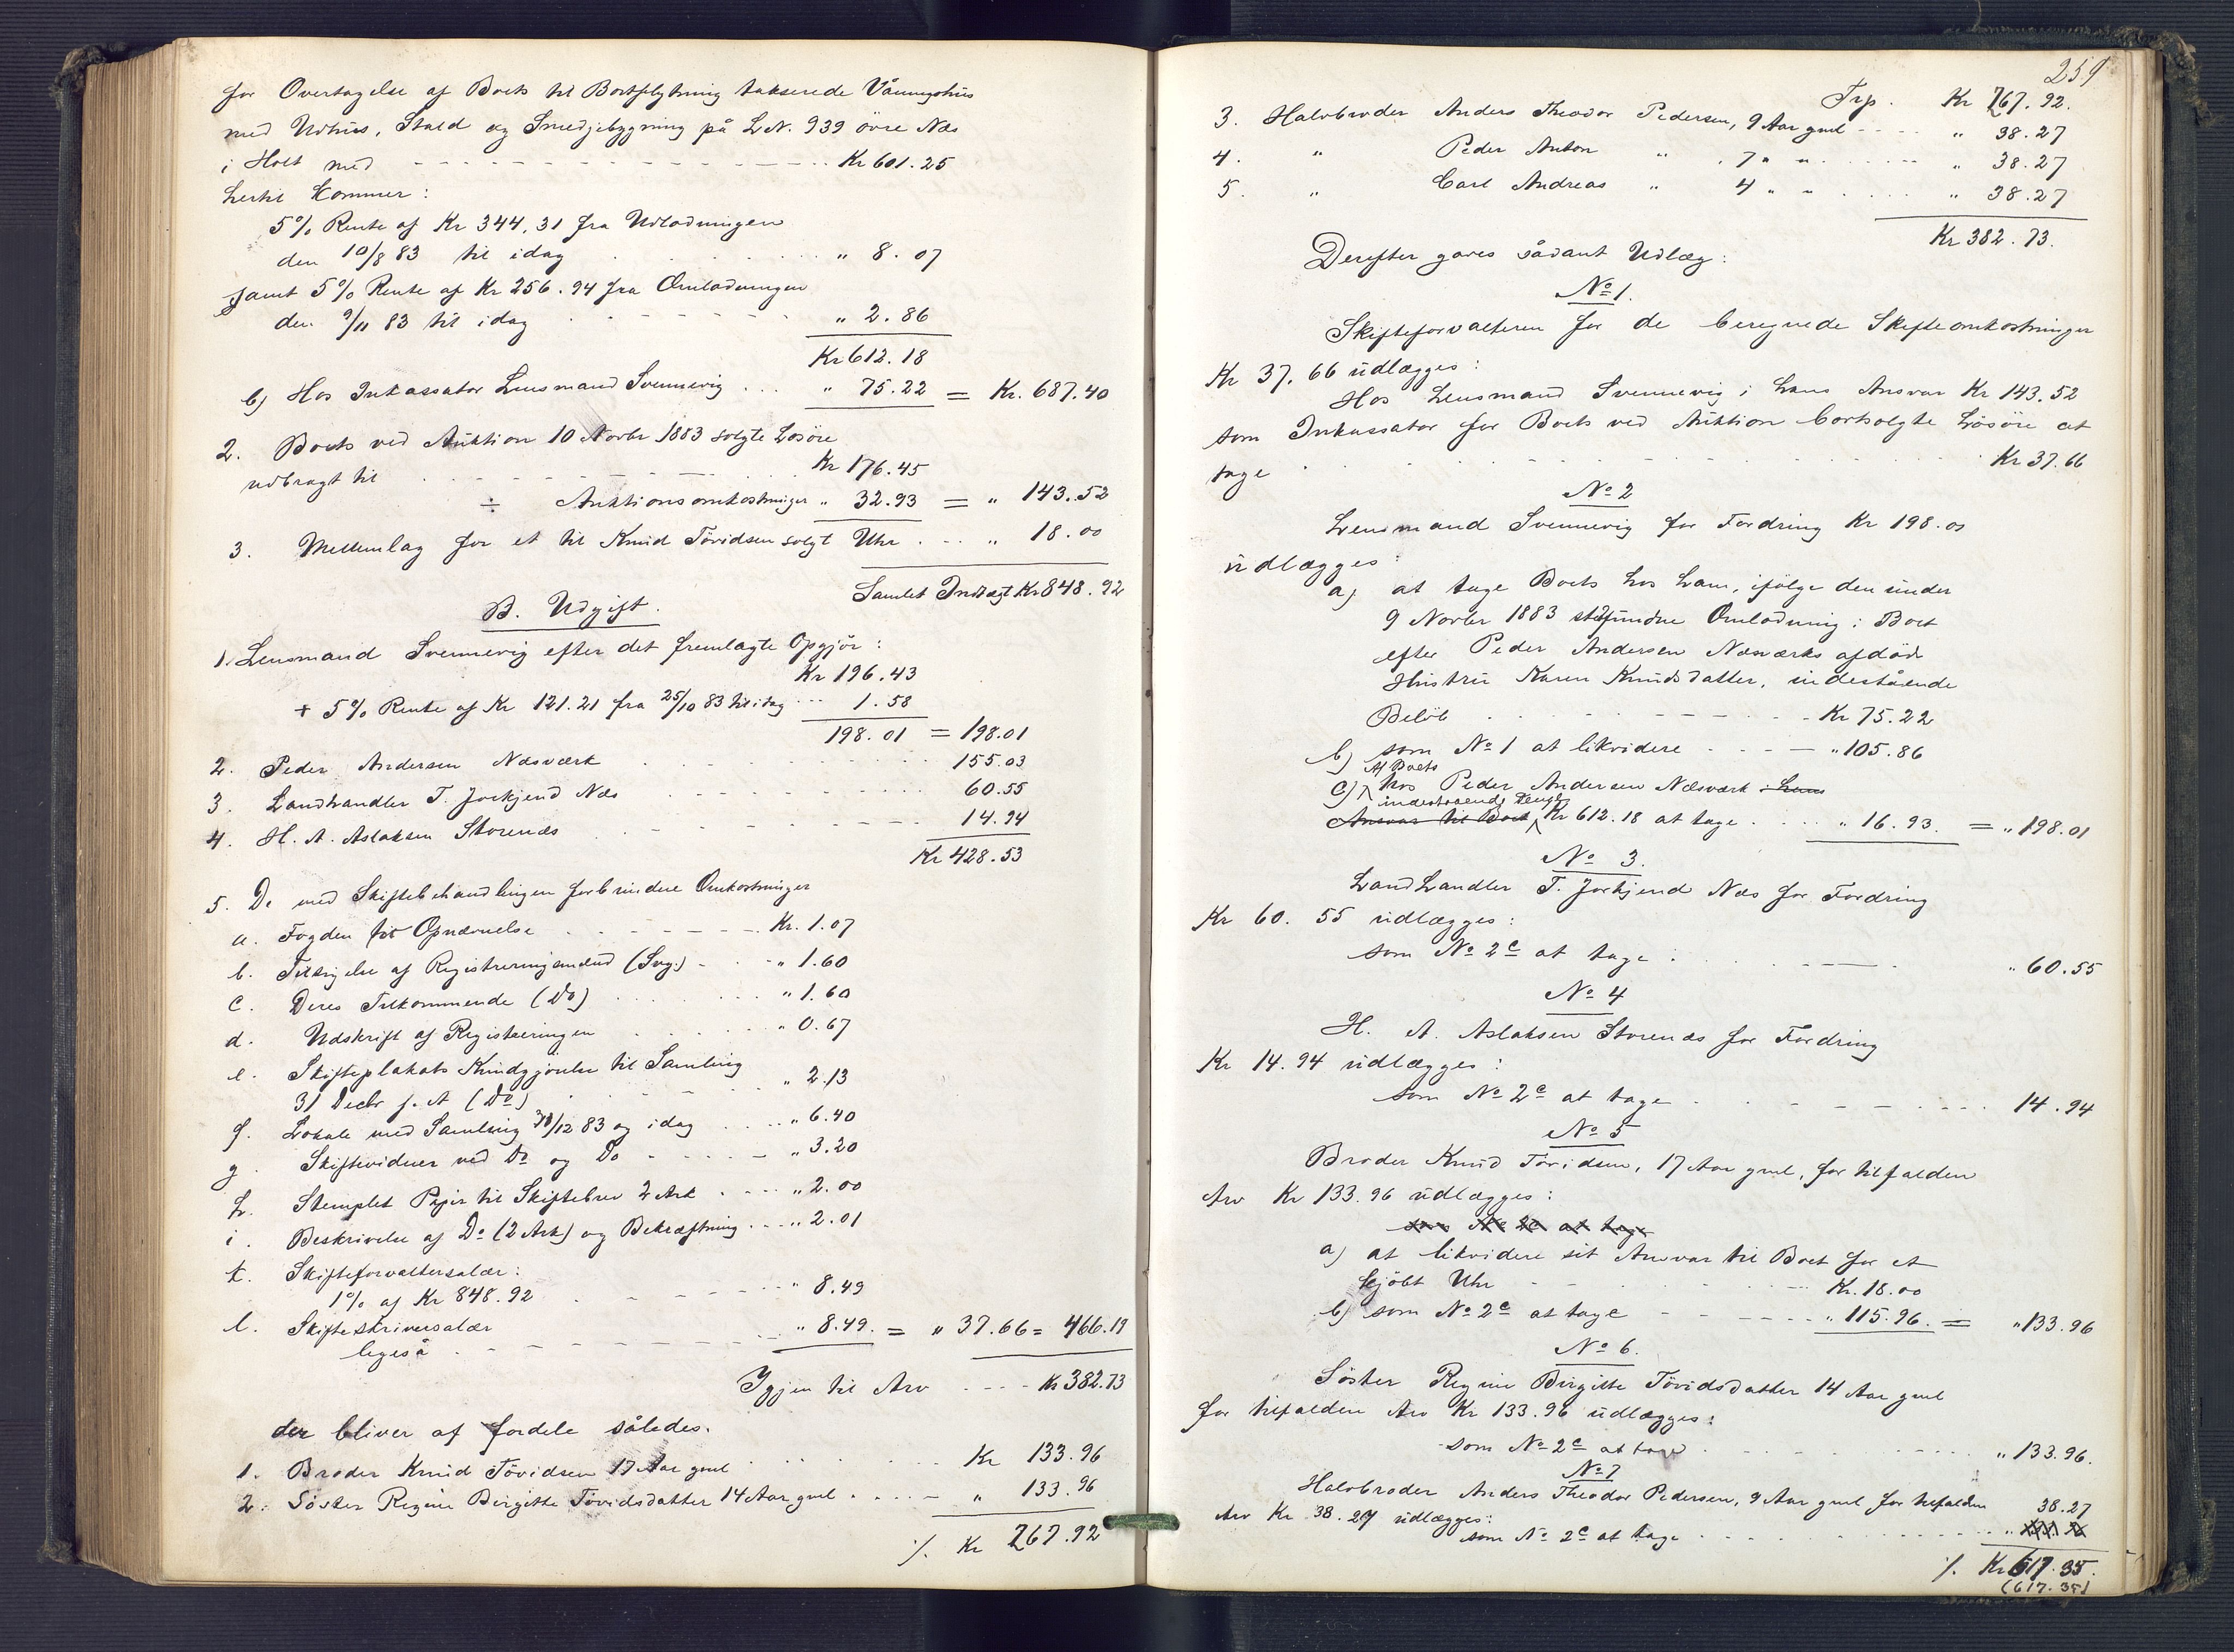 for Overtagelse af Boets til Bortflytning takserede Våningshus
med Udhus, Stald og Smedjebygning på L.N. 939 övre Næs
i Holt med - - - Kr 601.25
hertil kommer:
5% Rente af Kr 344,31 fra Udlodningen
den 10/8 83 til idag . . . " 8.07
samt 5% Rente af Kr 256.94 fra Omlodningen
den 9/11 83 til idag . . . " 2.86
Kr 612.18
b) Hos Inkassator Lensmand Svennevig . . . " 75.22 = Kr. 687.40
2. Boets ved Auktion 10 Novbr 1883 solgte Losöre
udbragt til . . . Kr 176.45
÷ Auktionsomkostninger " 32.93 = " 143.52
3. Mellemlag for et til Knud Tövidsen solgt Uhr . . . " 18.00
Samlet Indtægt Kr 848.92
B. Udgift.
1. Lensmand Svennevig efter det fremlagte Opgjör:
Kr 196.43
+ 5% Rente af Kr 121.21 fra 25/10 83 til idag . . . 1.58
198.01 = 198.01
2. Peder Andersen Næsværk . . . 155.03
3. Landhandler T. Jorkjend Næs . . . 60.55
4. H. A. Aslaksen Storenæs . . . 14.94
Kr 428.53
5. De med Skiftebehandlingen forbundne Omkostninger
a. Fogden for Opnævnelse . . . Kr. 1.07
b. Tilsigelse af Registreringsmænd (Svg.) . . . " 1.60
c. Deres Tilkommende (Do) . . . " 1.60
d. Udskrift af Registreringen . . . " 0.67
e. Skifteplakats Kundgjörelse til Samling
31 Decbr f. A (Do) . . . " 2.13
f. Lokale med Samling 31/12 83 og idag . . . " 6.40
g. Skiftevidner ved Do og Do . . . " 3.20
h. Stemplet Papir til Skiftebrev 2 Ark . . . " 2.00
i. Beskrivelse af Do (2 Ark) og Bekræftning . . . " 2.01
k. Skifteforvaltersalær:
1% af Kr 848.92 . . . " 8.49
l. Skifteskriversalær
ligeså . . . " 8.49. = " 37.66 = 466.19
Igjen til Arv . . . Kr 382.73
der bliver af fordele således.
1. Broder Knud Tövidsen 17 Aar gml . . . Kr 133.96
2. Söster Regine Birgitte Tövidsdatter 14 Aar gml . . . " 133.96
./. Kr 267.92
259
Trp. Kr 267.92.
3. Halvbroder Anders Theodor Pedersen, 9 Aar gml . . . " 38.27
4. " Peder Anton " , 7 " " . . . " 38.27
5. " Carl Andreas " 4 " " . . . " 38.27
Kr 382.73.
Derefter gøres sådant Udlæg:
No 1.
Skifteforvalteren for de beregnede Skifteomkostninger
Kr 37.66 udlægges:
Hos Lensmand Svennevig i hans Ansvar Kr 143.52
som Inkassator for Boets ved Auktion bortsolgte Lösöre at
tage . . . Kr 37.66
No 2
Lensmand Svennevig for Fordring Kr 198.01
udlægges:
a) at tage Boets hos ham, ifölge den under
9 Novbr 1883 stedfundne Omlodning i Boet
efter Peder Andersen Næsværks afdöde
Hustru Karen Knudsdatter, indestående
Belöb . . . Kr 75.22
b) som No 1 at likvidere . . . " 105.86
Af Boets
c) hos Peder Andersen Næsværk hans
indestaaende Penge
Ansvar til Boet Kr 612.18 at tage . . . " 16.93. = " 198.01
No 3.
Landhandler T. Jorkjend Næs for Fordring
Kr 60.55 udlægges:
som No 2c at tage: . . . " 60.55
No 4
H. A. Aslaksen Storenæs for Fordring
Kr 14.94 udlægges:
som No 2c at tage . . . 14.94
No 5
Broder Knud Tövidsen, 17 Aar gml, for tilfalden
Arv Kr 133.96 udlægges:
som No 2c at tage
a) at likvidere sit Ansvar til Boet for et
kjöbt Uhr . . . Kr. 18.00
b) som No 2c at tage . . . " 115.96. = " 133.96
No 6.
Söster Regine Birgitte Tövidsdatter 14 Aar gml
for tilfalden Arv Kr 133.96 udlægges:
som No 2c at tage . . . " 133.96.
No 7
Halvbroder Anders Theodor Pedersen, 9 Aar gml for tilfalden
Arv Kr 38.27 udlægges: 38.27
som No 2c at tage . . . "
./. Kr 617.35.
(617.35)